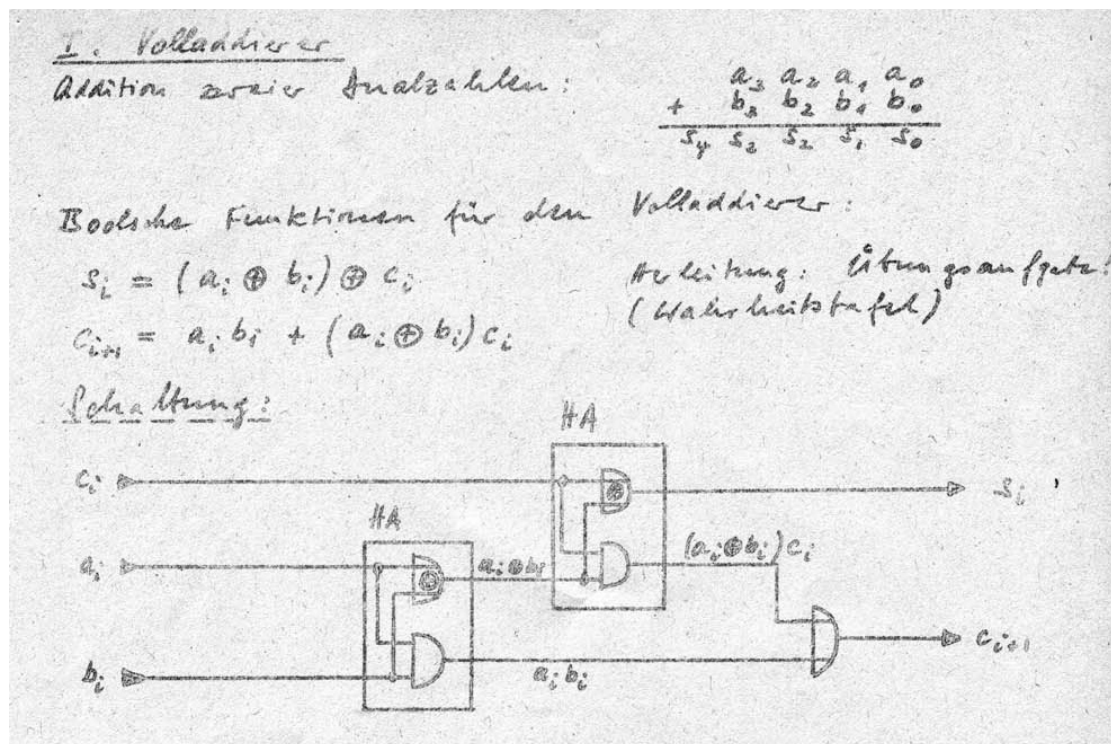 I. Volladdierer
Addition zweier Dualzahlen:
a₃ a₂ a₁ a₀
+ b₃ b₂ b₁ b₀
S₄ S₃ S₂ S₁ S₀
Boolsche Funktionen für den Volladdierer:
sᵢ = (aᵢ ⊕ bᵢ) ⊕ cᵢ
Herleitung: Übungsaufgabe!
cᵢ₊₁ = aᵢ bᵢ + (aᵢ ⊕ bᵢ) cᵢ
(Wahrheitstafel)
Schaltung:
HA
cᵢ
sᵢ
HA
aᵢ
aᵢ⊕bᵢ
(aᵢ⊕bᵢ)cᵢ
cᵢ₊₁
bᵢ
aᵢ bᵢ